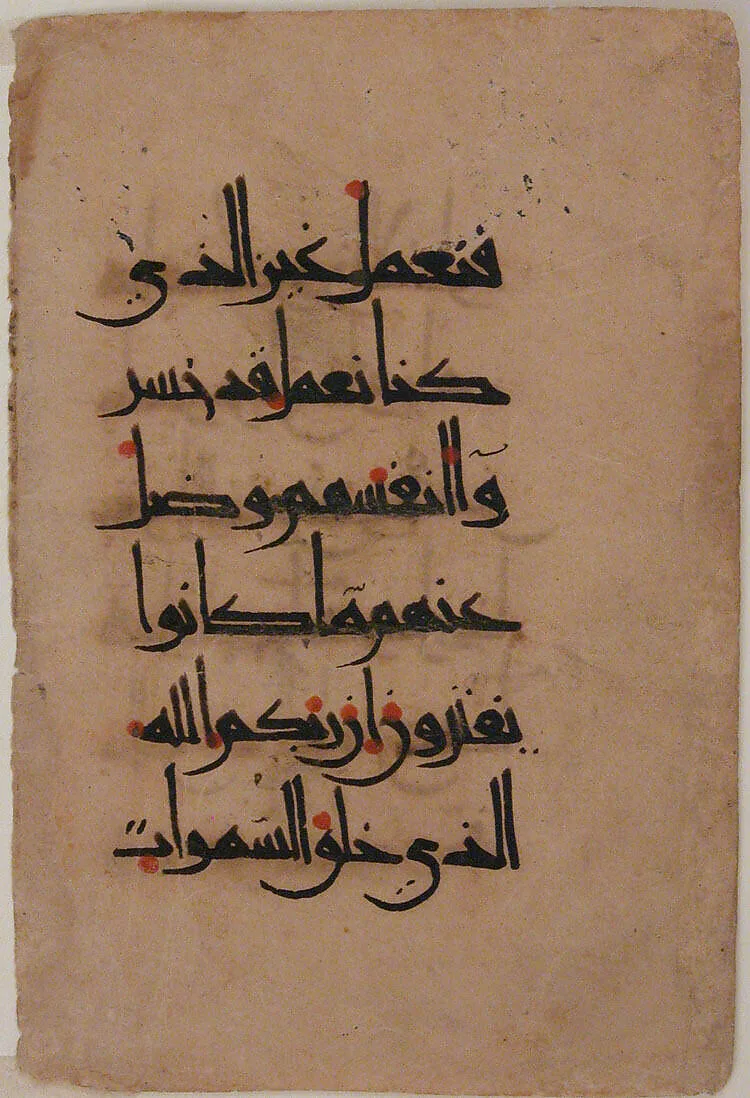 فنعمل غير الذي
كنا نعمل قد خسر
وا انفسهم وضل
عنهم ما كانوا
يفترون ان ربكم الله
الذي خلق السموات